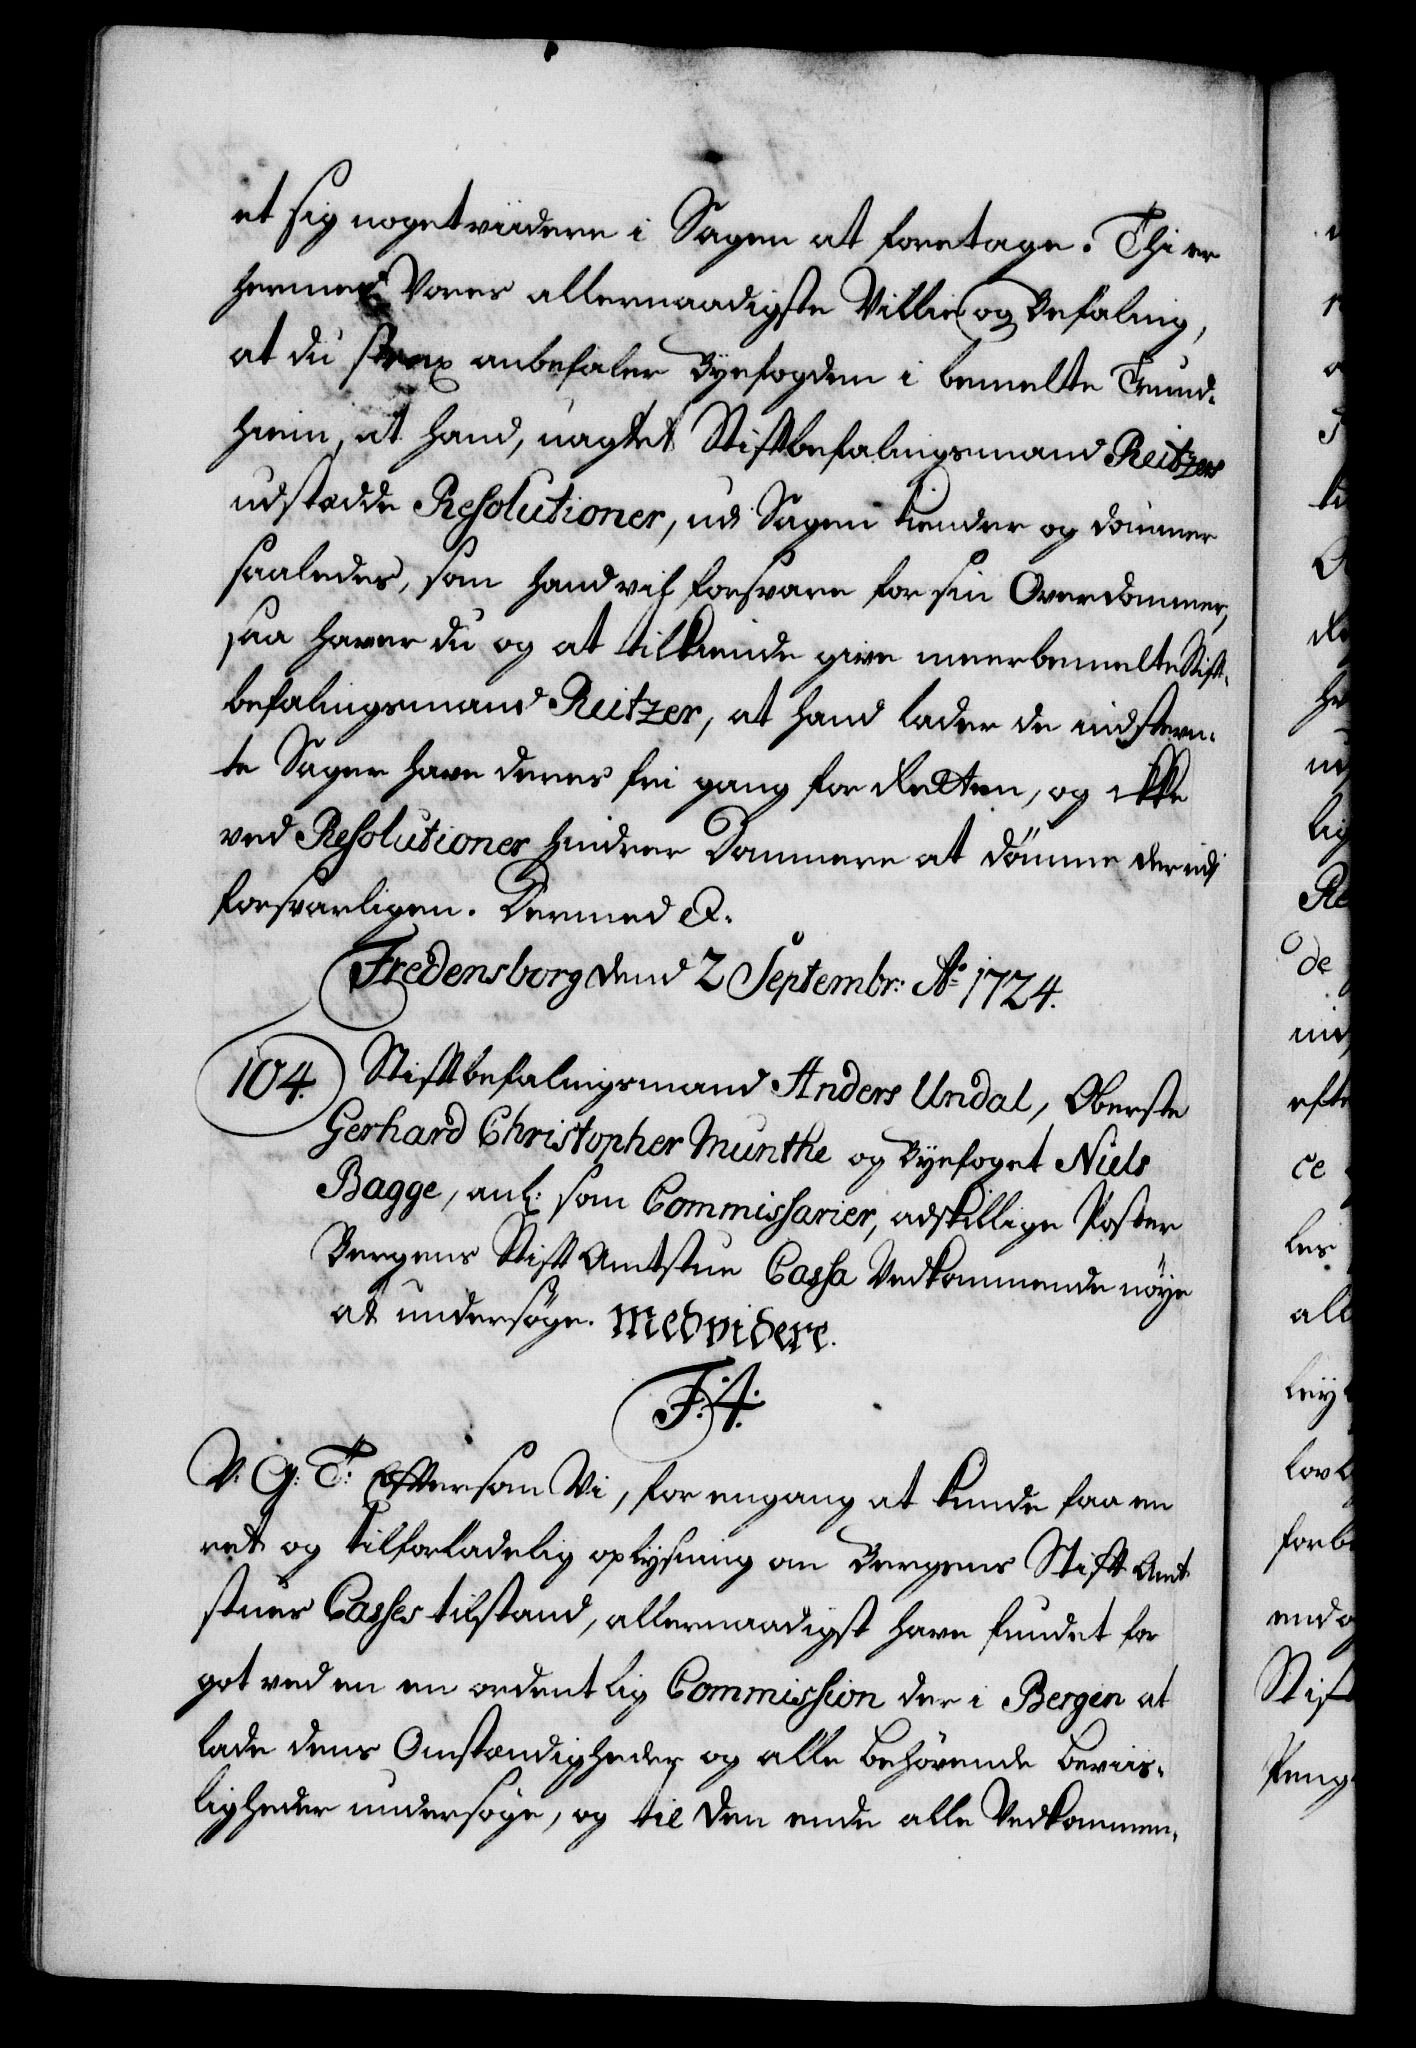 et sig noget viidere i Sagen at foretage. Thi er
hermed Vores allernaadigste Villie og Befaling,
at du strax anbefaler Byefogden i bemelte Trund-
hiem, at hand, uagtet Stiftbefalingsmand Reitzers
udstædde Resolutioner, udi Sagen kiender og dømmer
saaledes, som hand vil forsvare for sin Overdommer,
saa haver du og at tilkiende give meerbemelte Stift-
befalingsmand Reitzer, at hand lader de indstevn-
te Sager have deres fri gang for Retten, og ikke
ved Resolutioner hindrer Dommere at dömme derudi
forsvarligen. Dermed &.
Fredensborg dend 2 Septembr: Ao 1724.
104. Stiftbefalingsmand Anders Undal, Oberste
Gerhard Christopher Munthe og Byefoget Niels
Bagge, anl: som Commissarier, adskillige Poster
Bergens Stift Amtstue Cassa Vedkommende nöye
at undersöge. Medvidere.
F: 4:
V: G: T: Eftersom Vi, for engang at kunde faa en
ret og tilforladelig oplysning om Bergens Stift Amt
stues Casses tilstand, allernaadigst have fundet for
got ved en en ordentlig Commission der i Bergen at
lade dens Omstændigheder og alle behörende beviis-
ligheder undersöge, og til den ende alle Vedkommen-